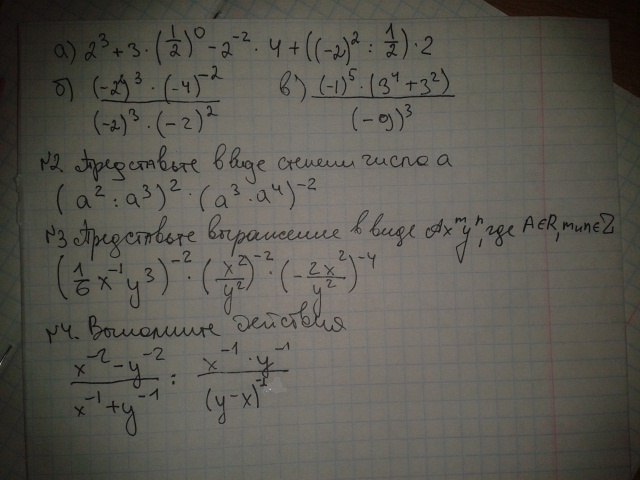 а) 2³ + 3 · (1/2)⁰ - 2⁻² · 4 + ((-2)² : 1/2) · 2
б) (-2⁴)³ · (-4)⁻² / (-2)³ · (-2)² в) (-1)⁵ · (3⁴ + 3²) / (-9)³
№2 Представьте в виде степени число a
(a² : a³)² · (a³ · a⁴)⁻²
№3 Представьте выражение в виде Axᵐyⁿ, где A∈R, m и n∈Z
(1/6 x⁻¹ y³)⁻² · (x²/y²)⁻² · (-2x²/y²)⁻⁴
№4. Выполните действия
x⁻² - y⁻² / x⁻¹ + y⁻¹ : x⁻¹ · y⁻¹ / (y-x)⁻¹